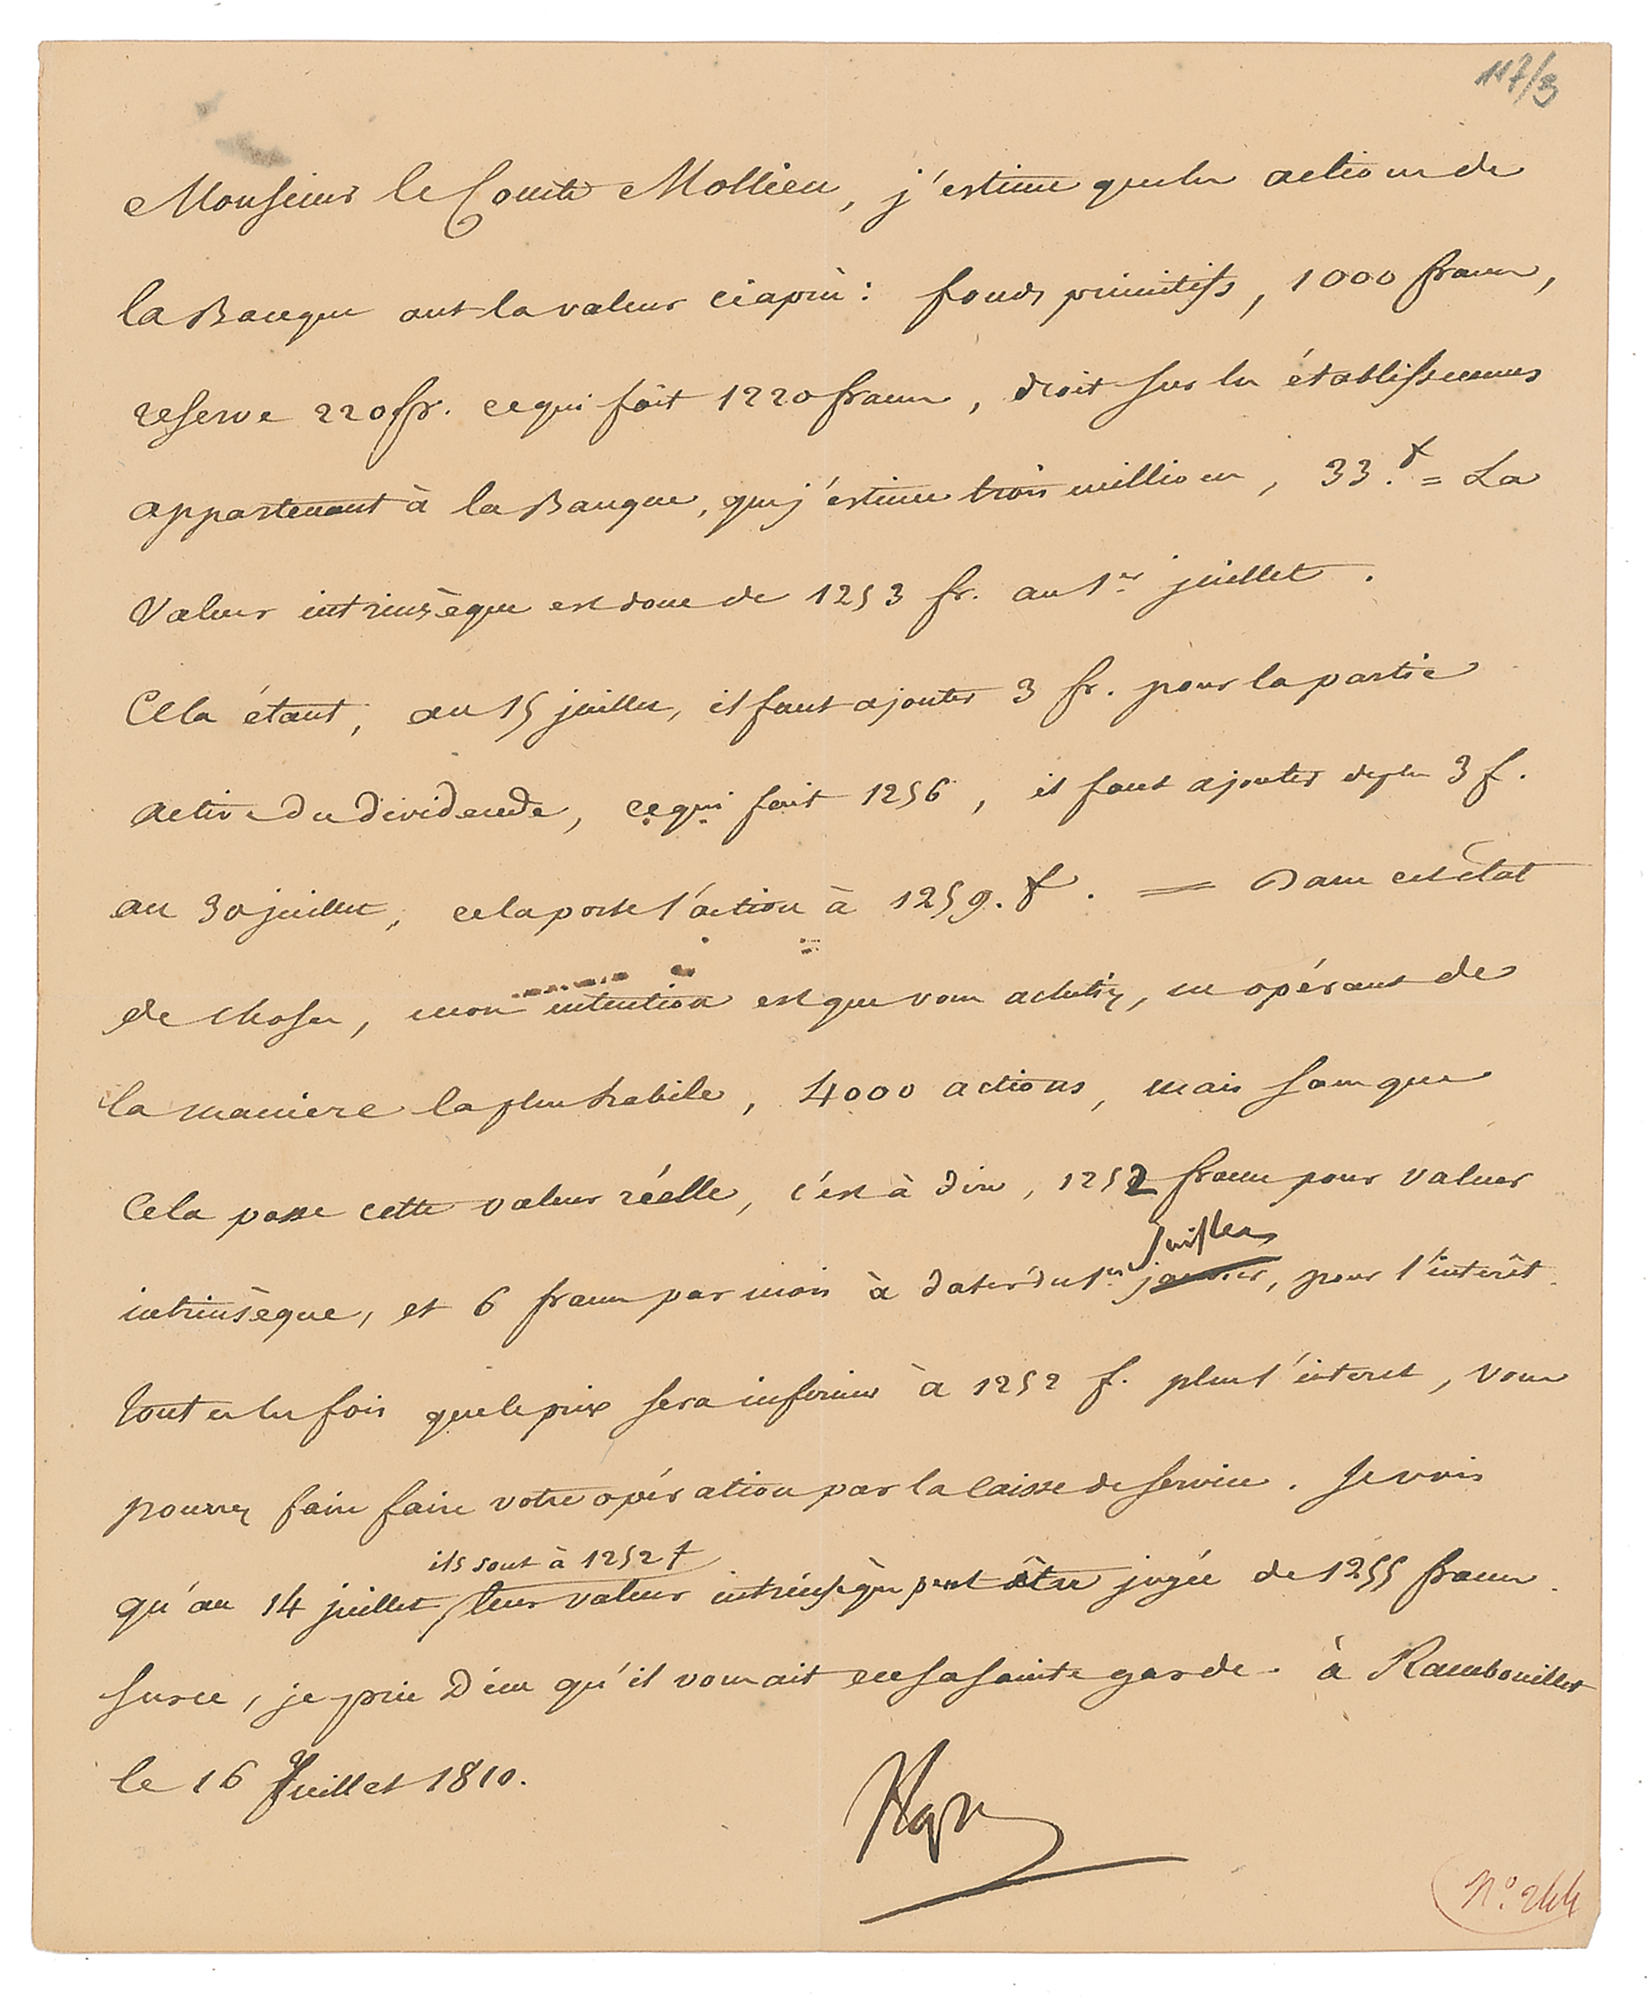 117/3
Monsieur le Comte Mollien, j'estime que les actions de
la Banque ont la valeur ci après : fonds primitifs, 1000 francs,
reserve 220 fr. ce qui fait 1220 francs, droit sur les établissemens
appartenant à la Banque, que j'estime trois millions, 33. f = La
valeur intrinsèque est donc de 1253 fr. au 1er juillet.
Cela étant, au 15 juillet, il faut ajouter 3 fr. pour la partie
active du dividende, ce qui fait 1256, il faut ajouter de plus 3 f.
au 30 juillet, cela porte l'action à 1259. f. = Dans cet état
de choses, mon intention est que vous achetiez, en opérant de
la maniere la plus habile, 4000 actions, mais sans que
cela passe cette valeur réelle, c'est à dire, 1252 francs pour valeur
Juillet
intrinsèque, et 6 francs par mois à dater du 1er janvier, pour l'intérêt.
Toutes les fois que le prix sera inférieur à 1252 f. plus l'interet, vous
pourrez faire faire votre opération par la caisse de service. Je vois
ils sont à 1252 f
qu'au 14 juillet leur valeur intrinsèque peut être jugée de 1255 francs.
Sur ce, je prie Dieu qu'il vous ait en sa sainte garde. à Rambouillet
le 16 Juillet 1810.
Nap
N.º 244